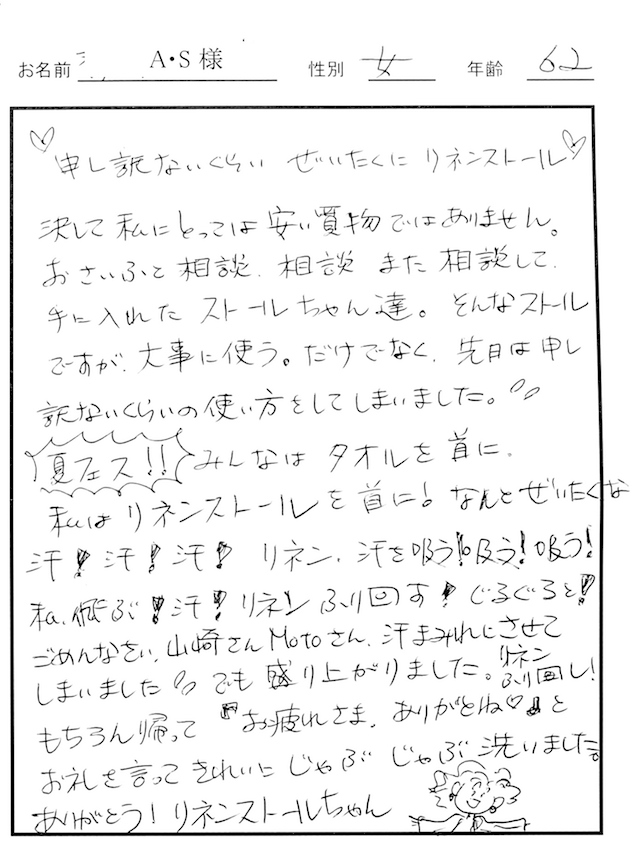 お名前 A・S様 性別 女 年齢 62
♡申し訳ないくらい ぜいたくに リネンストール♡
決して私にとっては安い買物ではありません。
おさいふと相談、相談 また相談して、
手に入れた ストールちゃん達。そんなストール
ですが、大事に使う。だけでなく、先日は申し
訳ないくらいの使い方をしてしまいました。
夏フェス!! みんなは タオルを首に、
私はリネンストールを首に! なんとぜいたくな
汗!汗!汗! リネン、汗を吸う!吸う!吸う!
私、飛ぶ!汗!リネン ふり回す!ぐるぐると!
ごめんなさい、山崎さんMotoさん、汗まみれにさせて
しまいました でも盛り上がりました。リネン
ふり回し!
もちろん帰って『お疲れさま、ありがとね♡』と
お礼を言ってきれいに じゃぶ じゃぶ 洗いました。
ありがとう! リネンストールちゃん